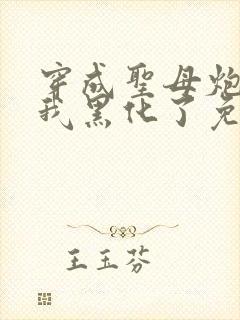 穿成聖母炮
我黑化了免
王玉芬